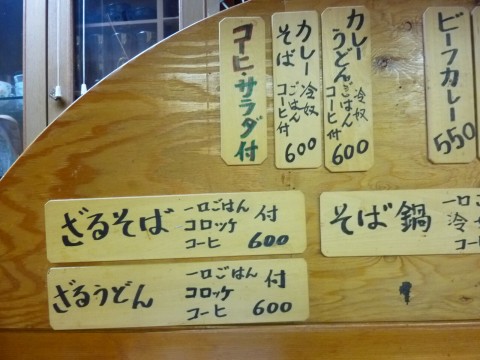 ビーフカレー 550
カレーうどん 冷奴 ごはん コーヒ付 600
カレーそば 冷奴 ごはん コーヒ付 600
コーヒ・サラダ付
ざるそば
一口ごはん
コロッケ
コーヒ
付
600
そば鍋
一口
冷
コーヒ
ざるうどん
一口ごはん
コロッケ
コーヒ
付
600